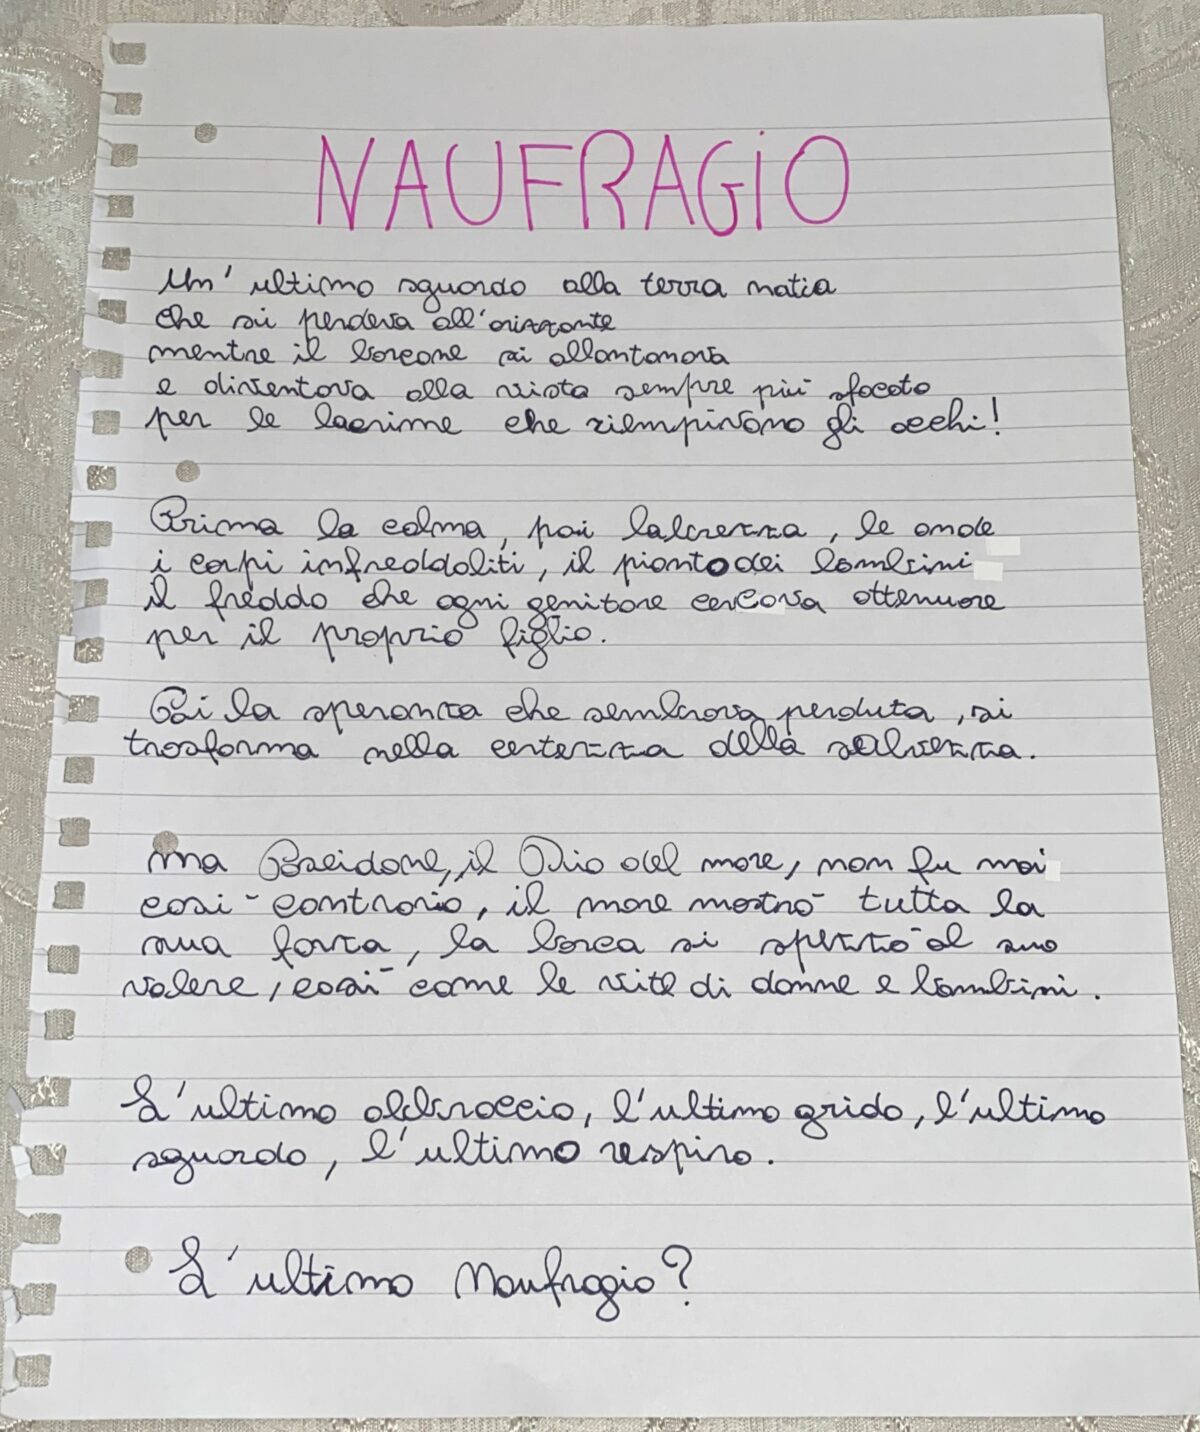 NAUFRAGIO
Un' ultimo sguardo alla terra natia
che si perdeva all'orizzonte
mentre il barcone si allontanava
e diventava alla vista sempre più sfocato
per le lacrime che riempivano gli occhi!
Prima la calma, poi l'albrezza, le onde
i corpi infreddoliti, il pianto dei bambini
il freddo che ogni genitore cercava attenuare
per il proprio figlio.
Poi la speranza che sembrava perduta, si
trasforma nella certezza della salvezza.
ma Poseidone, il Dio del mare, non fu mai
così contrario, il mare mostrò tutta la
sua forza, la barca si spezzò al suo
volere, così come le vite di donne e bambini.
L'ultimo abbraccio, l'ultimo grido, l'ultimo
sguardo, l'ultimo respiro.
L'ultimo Naufragio?